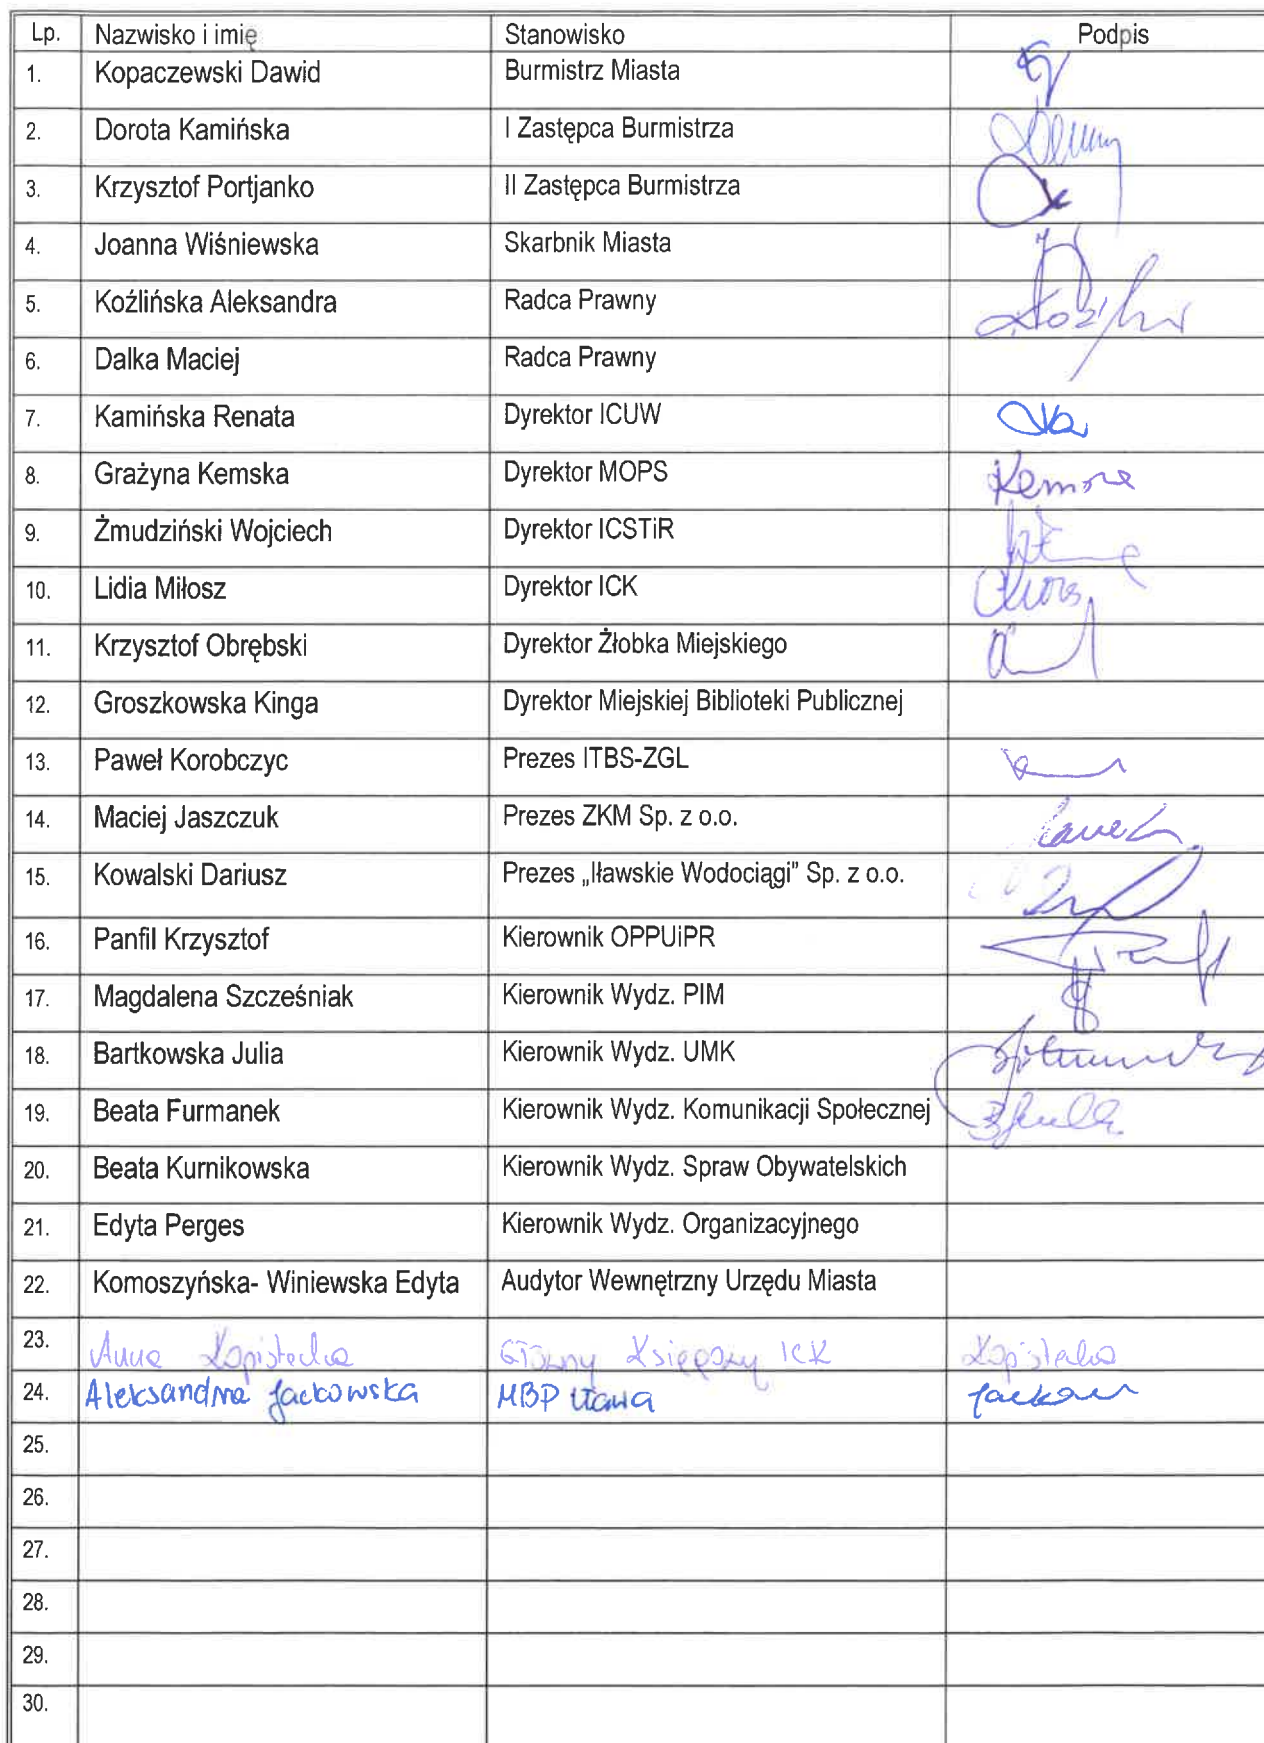 Lp. Nazwisko i imię Stanowisko Podpis
1. Kopaczewski Dawid Burmistrz Miasta
2. Dorota Kamińska I Zastępca Burmistrza
3. Krzysztof Portjanko II Zastępca Burmistrza
4. Joanna Wiśniewska Skarbnik Miasta
5. Koźlińska Aleksandra Radca Prawny
6. Dalka Maciej Radca Prawny
7. Kamińska Renata Dyrektor ICUW
8. Grażyna Kemska Dyrektor MOPS
9. Żmudziński Wojciech Dyrektor ICSTiR
10. Lidia Miłosz Dyrektor ICK
11. Krzysztof Obrębski Dyrektor Żłobka Miejskiego
12. Groszkowska Kinga Dyrektor Miejskiej Biblioteki Publicznej
13. Paweł Korobczyc Prezes ITBS-ZGL
14. Maciej Jaszczuk Prezes ZKM Sp. z o.o.
15. Kowalski Dariusz Prezes „Iławskie Wodociągi” Sp. z o.o.
16. Panfil Krzysztof Kierownik OPPUiPR
17. Magdalena Szcześniak Kierownik Wydz. PIM
18. Bartkowska Julia Kierownik Wydz. UMK
19. Beata Furmanek Kierownik Wydz. Komunikacji Społecznej
20. Beata Kurnikowska Kierownik Wydz. Spraw Obywatelskich
21. Edyta Perges Kierownik Wydz. Organizacyjnego
22. Komoszyńska- Winiewska Edyta Audytor Wewnętrzny Urzędu Miasta
23. Anna Główny Księgowy ICK
24. Aleksandra Jackowska MBP Iława
25.
26.
27.
28.
29.
30.